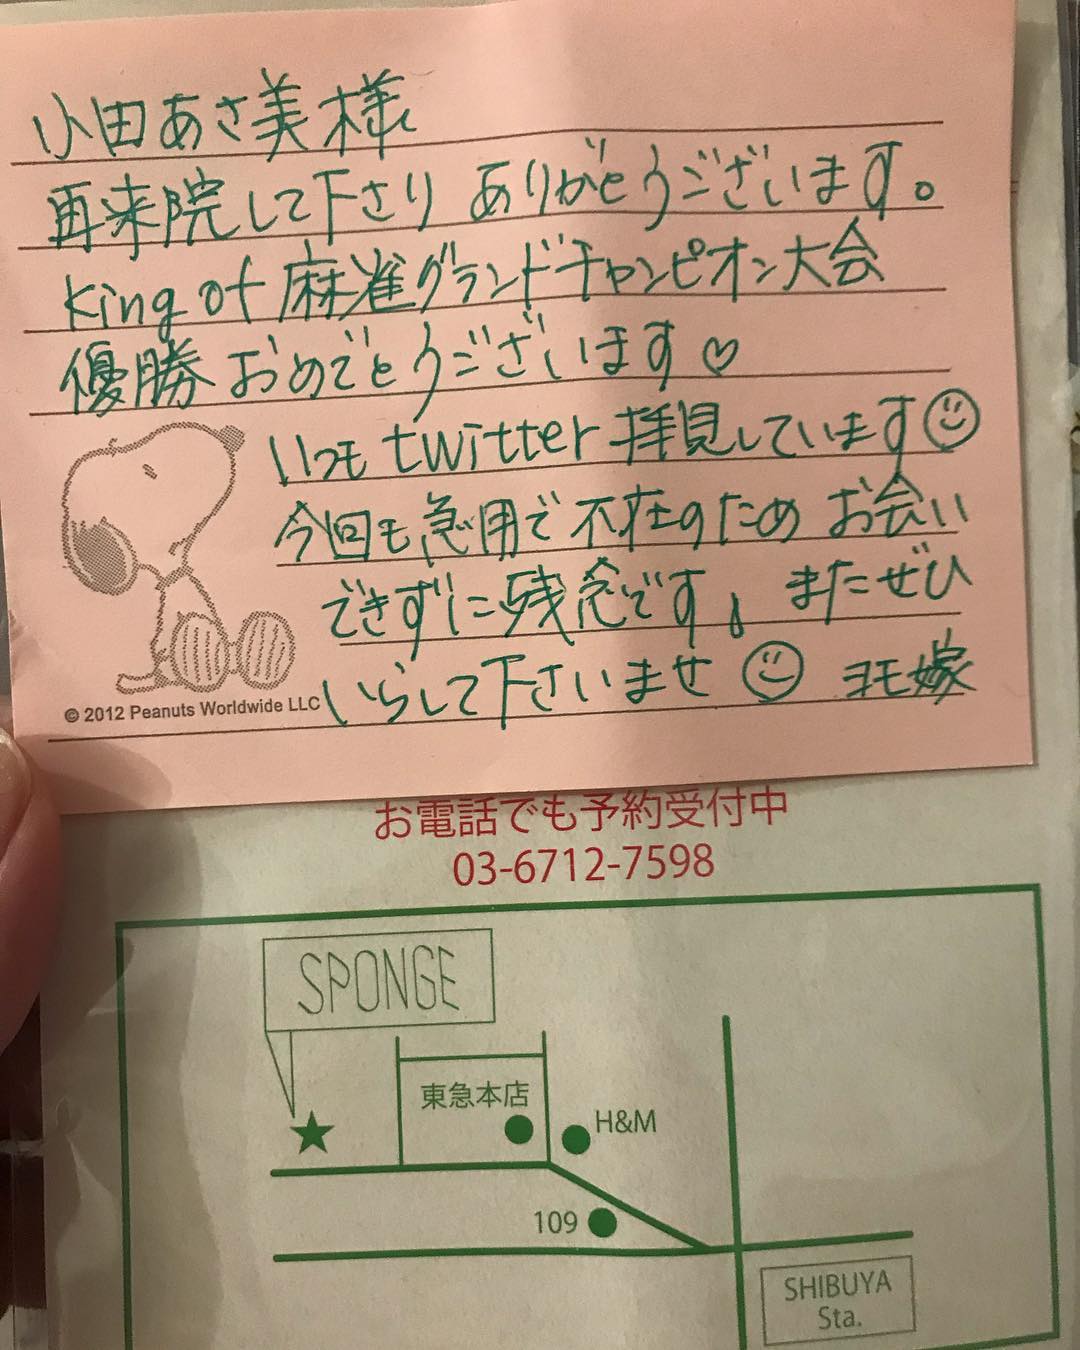 小田あさ美様
再来院して下さり ありがとうございます。
King of 麻雀グランドチャンピオン大会
優勝 おめでとうございます♡
いつも twitter 拝見しています☺
今回も急用で不在のため お会い
できずに残念です♪ またぜひ
いらして下さいませ ☺ ヨモ嫁
© 2012 Peanuts Worldwide LLC
お電話でも予約受付中
03-6712-7598
SPONGE
東急本店
H&M
109
SHIBUYA
Sta.